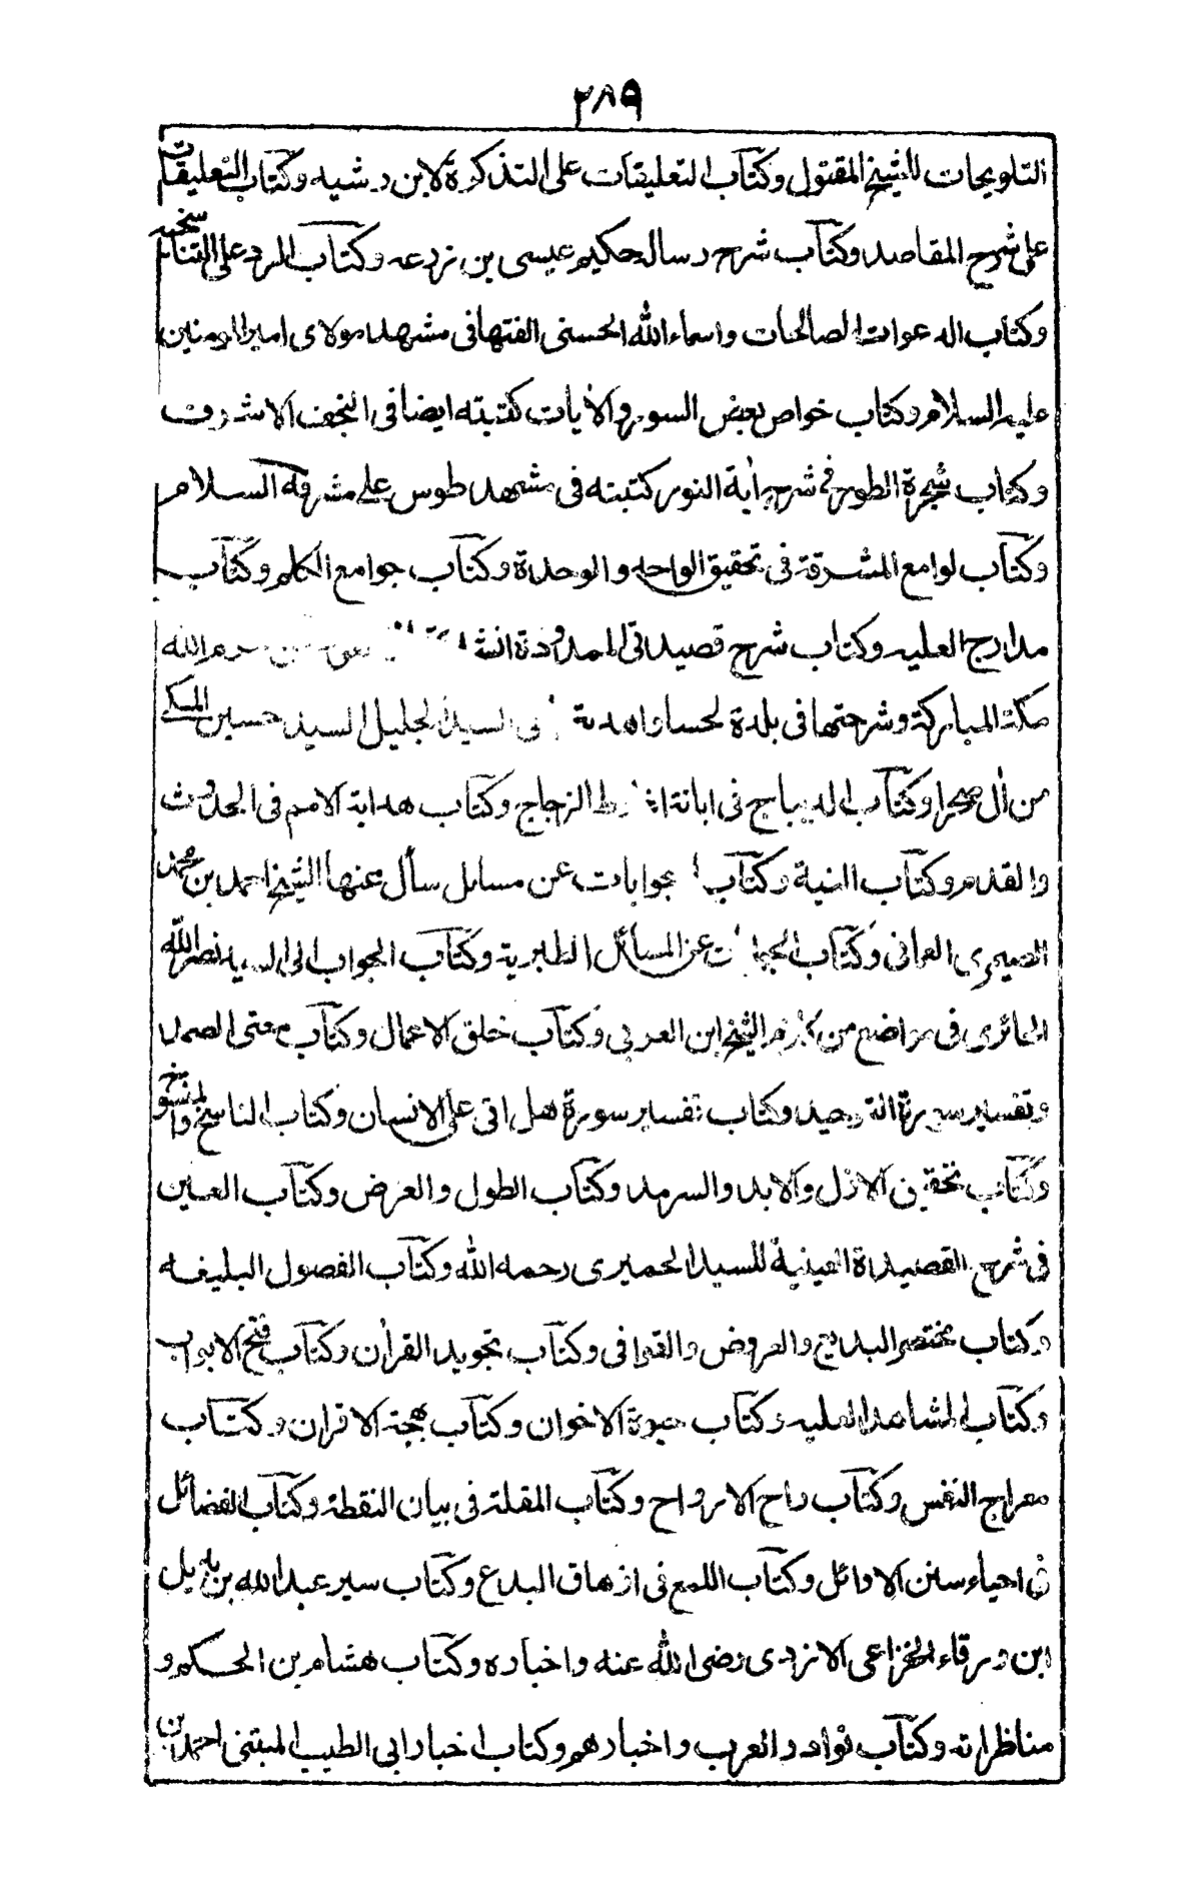 ٢٨٩
التلويحات للشيخ المقتول وكتاب التعليقات على التذكرة لابن رشيد وكتاب التعليقات
على شرح المقاصد وكتاب شرح رسالة حكيم عيسى بن زرعه وكتاب الرد على التناسخيه
وكتاب الدعوات الصالحات واسماء الله الحسنى الفتها فى مشهد مولاى امير المومنين
عليه السلام وكتاب خواص بعض السور والأيات كتبته ايضا فى النجف الاشرف
وكتاب شجرة الطور فى شرح أية النور كتبته فى مشهد طوس على مشرفه السلام
وكتاب لوامع المشرقة فى تحقيق الواحد والوحدة وكتاب جوامع الكلم وكتاب
مدارج العليه وكتاب شرح قصيدتى الممدودة الله
مكة المباركة وشرحتها فى بلدة لحسا السيد الجليل السيد حسين المكى
من أل صحرا وكتاب الديباج فى ابانة الزجاج وكتاب هداية الامم فى الحدوث
والقدم وكتاب المنية وكتاب جوابات عن مسائل سأل عنها الشيخ احمد بن محمد
الصيمرى العمانى وكتاب عن المسائل الطبرية وكتاب الجواب الى السيد نصر الله
الحائرى فى مواضع من كلام الشيخ ابن العربى وكتاب خلق الاعمال وكتاب معنى الصمد
وتفسير سورة التوحيد وكتاب تفسير سورة هل اتى على الانسان وكتاب الناسخ والمنسوخ
وكتاب تحقيق الازل والابد والسرمد وكتاب الطول والعرض وكتاب العين
فى شرح القصيدة العينية للسيد الحميرى رحمه الله وكتاب الفصول البليغه
وكتاب مختصر البديع والعروض والقوافى وكتاب تجويد القرأن وكتاب فتح الابواب
وكتاب المشاهد العليه وكتاب حيوة الاخوان وكتاب بهجة الاقران وكتاب
معراج النفس وكتاب راح الارواح وكتاب المقلة فى بيان النقطة وكتاب الفضائل
فى احياء سنن الاوائل وكتاب اللمع فى ازهاق البدع وكتاب سير عبد الله بن بديل
ابن ورقاء الخزاعى الازدى رضى الله عنه واخباره وكتاب هشام بن الحكم و
مناظراته وكتاب نوادر العرب واخبارهم وكتاب اخبار ابى الطيب المتنبى احمد بن